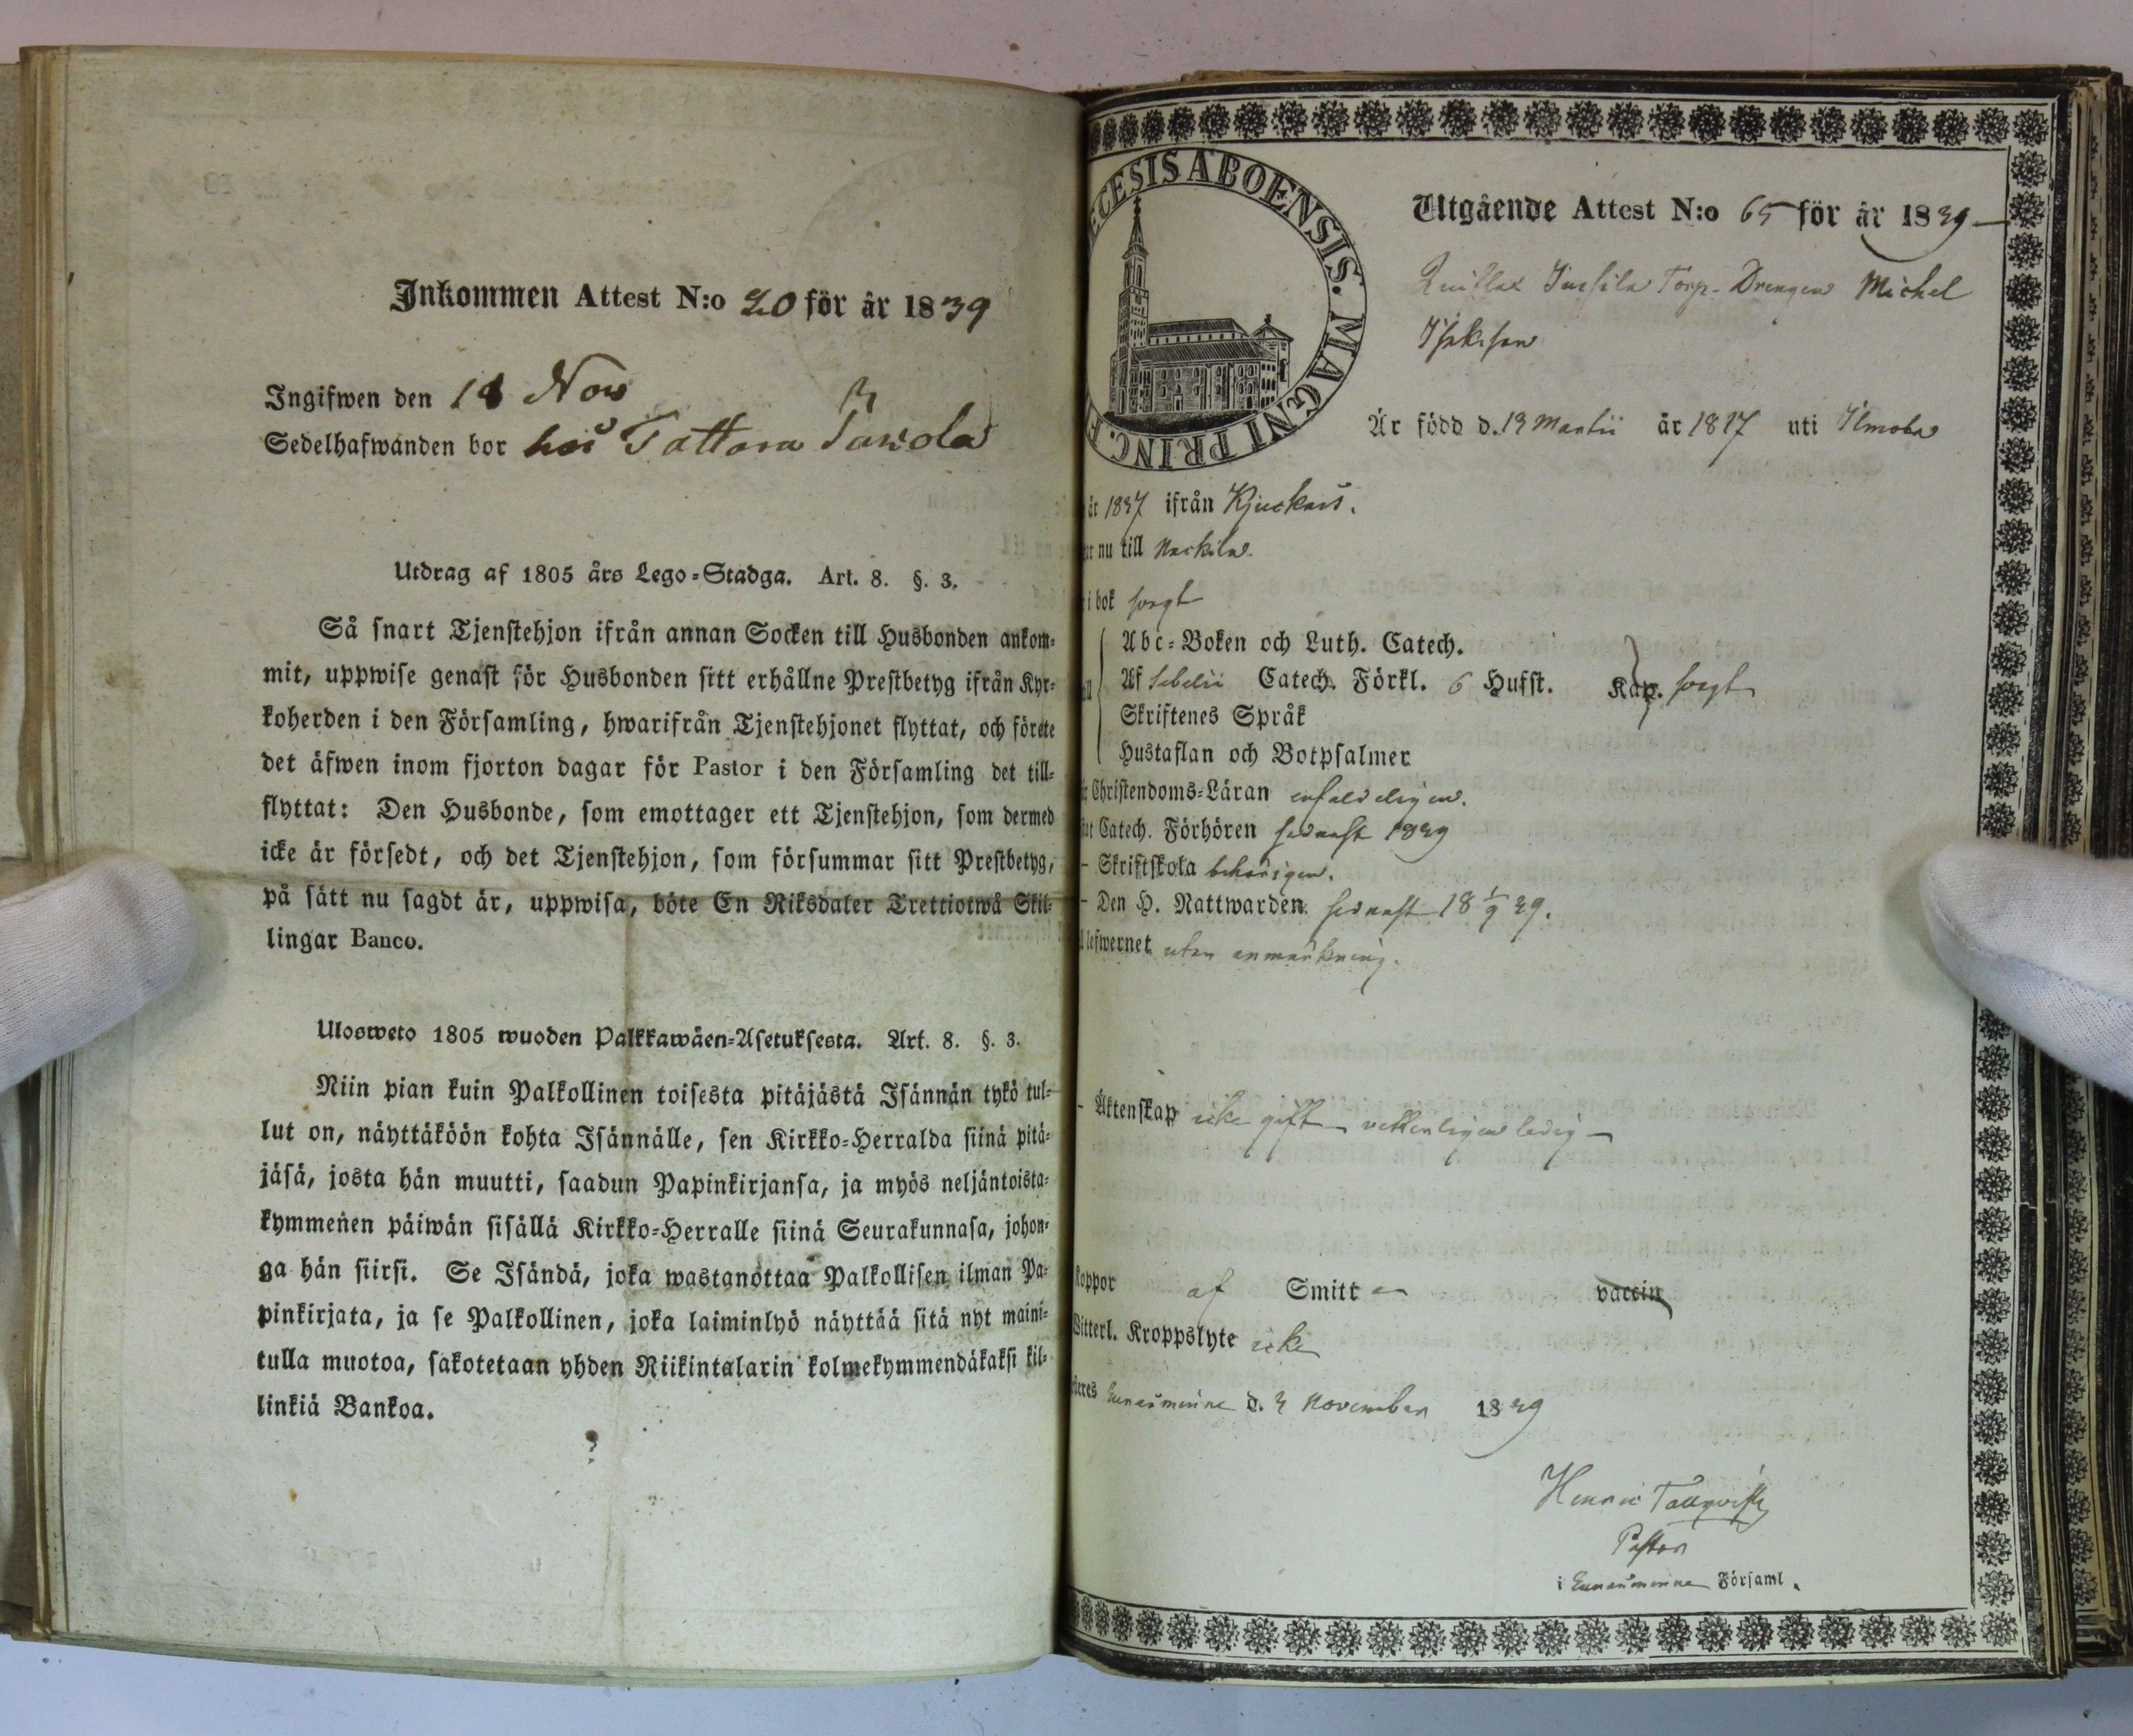 Inkommen Attest N:o 20 för år 1839
Ingifwen den 18 Nov
Sedelhafwanden bor hos Tattara
Utdrag af 1805 års Lego-Stadga. Art. 8. §. 3.
Så snart Tjenstehjon ifrån annan Socken till Husbonden ankom-
mit, uppwise genast för Husbonden sitt erhållne Prestbetyg ifrån Kyr-
koherden i den Församling, hwarifrån Tjenstehjonet flyttat, och förete
det äfwen inom fjorton dagar för Pastor i den Församling det till-
flyttat: Den Husbonde, som emottager ett Tjenstehjon, som dermed
icke är försedt, och det Tjenstehjon, som försummar sitt Prestbetyg,
på sätt nu sagdt är, uppwisa, böte En Riksdaler Trettiotwå Skil-
lingar Banco.
Ulosweto 1805 wuoden Palkkawäen-Asetuksesta. Art. 8. §. 3.
Niin pian kuin Palkollinen toisesta pitäjästä Isännän tykö tul-
lut on, näyttäköön kohta Isännälle, sen Kirkko-Herralda siinä pitä-
jäsä, josta hän muutti, saadun Papinkirjansa, ja myös neljäntoista-
kymmenen päiwän sisällä Kirkko-Herralle siinä Seurakunnasa, johon-
ga hän siirsi. Se Isändä, joka wastanottaa Palkollisen ilman Pa-
pinkirjata, ja se Palkollinen, joka laiminlyö näyttää sitä nyt maini-
tulla muotoa, sakotetaan yhden Riikintalarin kolmekymmendäkaksi kil-
linkiä Bankoa.
ECESIS ABOENSIS. MAGNI PRINC. F
Utgående Attest N:o 65 för år 1839
Torp-Drengen Michel
Är född d. 19 Martii år 1817 uti
år 1837 ifrån Kjuckais.
nu till Nackila
i bok svagt
Abc-Boken och Luth. Catech.
Af Sebelii Catech. Förkl. 6 Hufst. Kap. svagt
Skriftenes Språk
Hustaflan och Botpsalmer
Christendoms-Läran enfaldeligen.
Catech. Förhören sednast 1839
- Skriftskola behörigen.
- Den H. Nattwarden sednast 18 1/9 39.
lefwernet utan anmärkning.
- Äktenskap icke gift vetterligen ledig
Koppor af Smitt vaccin
Witterl. Kroppslyte icke
d. 3 November 1839
Henric Tallqvist
Pastor
i Församl.